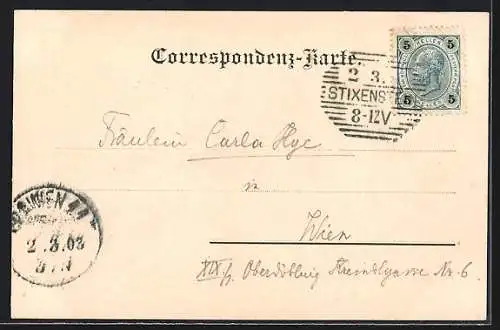 Correspondenz-Karte.
5 HELLER 5
5 HELLER 5
2 3.
STIXENST
8-12V
Fräulein Carla Hye
in
Wien
WIEN
2.3.03
XIX/1 Oberdöbling Kreindlgasse Nr. 6